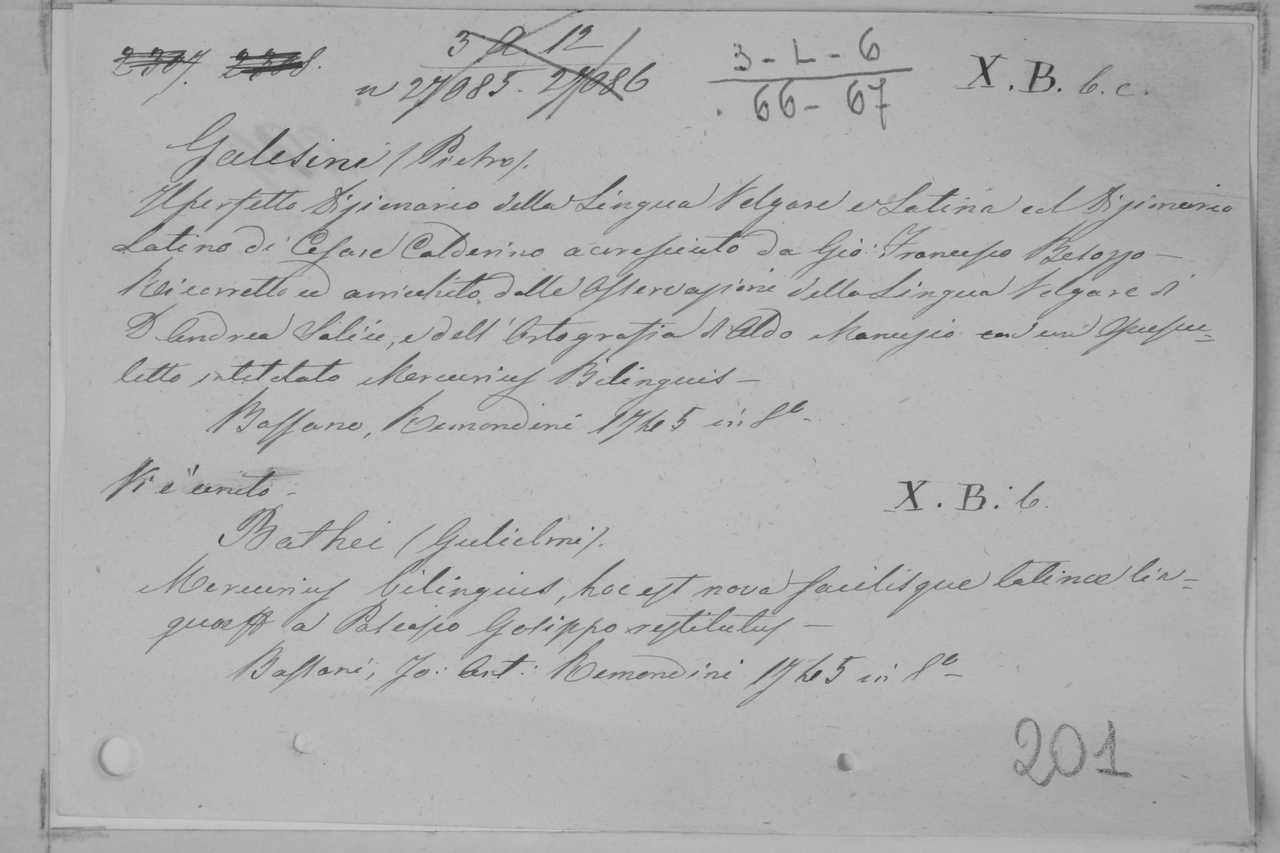 2307. 2308.
3 a 12
n 27085. 27086
3 - L - 6
66 - 67
X. B. b. c.
Galesini (Pietro).
Il perfetto Dizionario della Lingua Volgare e Latina col Dizionario
Latino di Cesare Calderino accresciuto da Gio: Francesco Besozzo —
Ricorretto ed arricchito dalle Osservazioni della Lingua Volgare di
D. Andrea Salici, e dell' Ortografia di Aldo Manuzio con un Opuscu=
letto intitolato Mercurius Bilinguis —
Bassano, Remondini 1745 in 8o
Vi è unito —
X. B. b.
Bathei (Gulielmi).
Mercurius bilinguis, hoc est nova facilisque latinæ lin=
guæ a Pascasio Gosippo restitutus —
Bassani, Jo: Ant: Remondini 1745 in 8o —
201